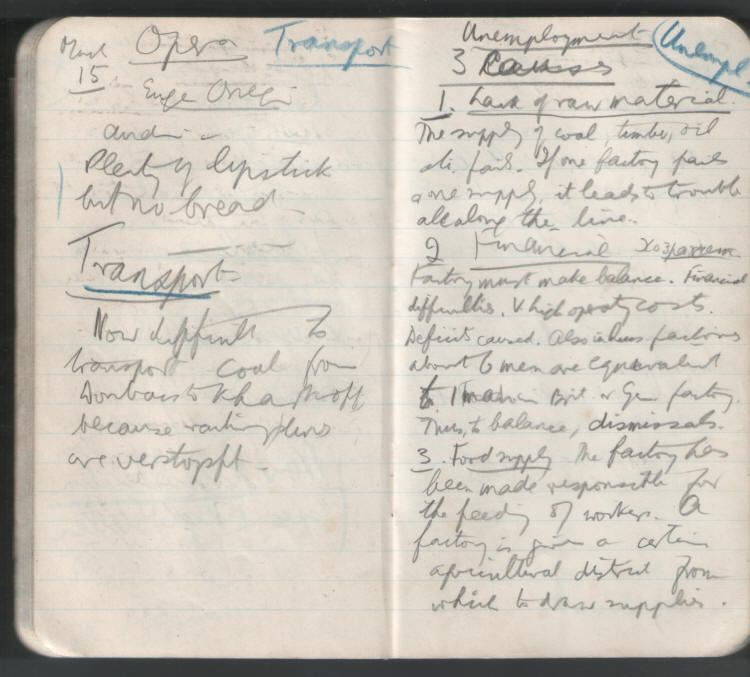 March 15. Opera Transport
Euge Onegi
Audi
Plenty of lipstick
but no bread
Transport
Now difficult to
transport coal from
Donbas to Kharkoff
because
are verstopft.
Unemployment Unempl.
3 Causes
1. Lack of raw material.
The supply of coal, timber, oil
etc. fails. If one factory fails
one supply, it leads to trouble
all along the line.
2 Financial
Factory must make balance. Financial
difficulties. V high operaty costs.
Deficits caused. Also in Russ factories
about 6 men are equivalent
to 1 man in Brit. or Ger. factory.
Thus, to balance, dismissals.
3. Food supply The factory has
been made responsible for
the feeding of workers. A
factory is given a certain
agricultural district from
which to draw supplies.